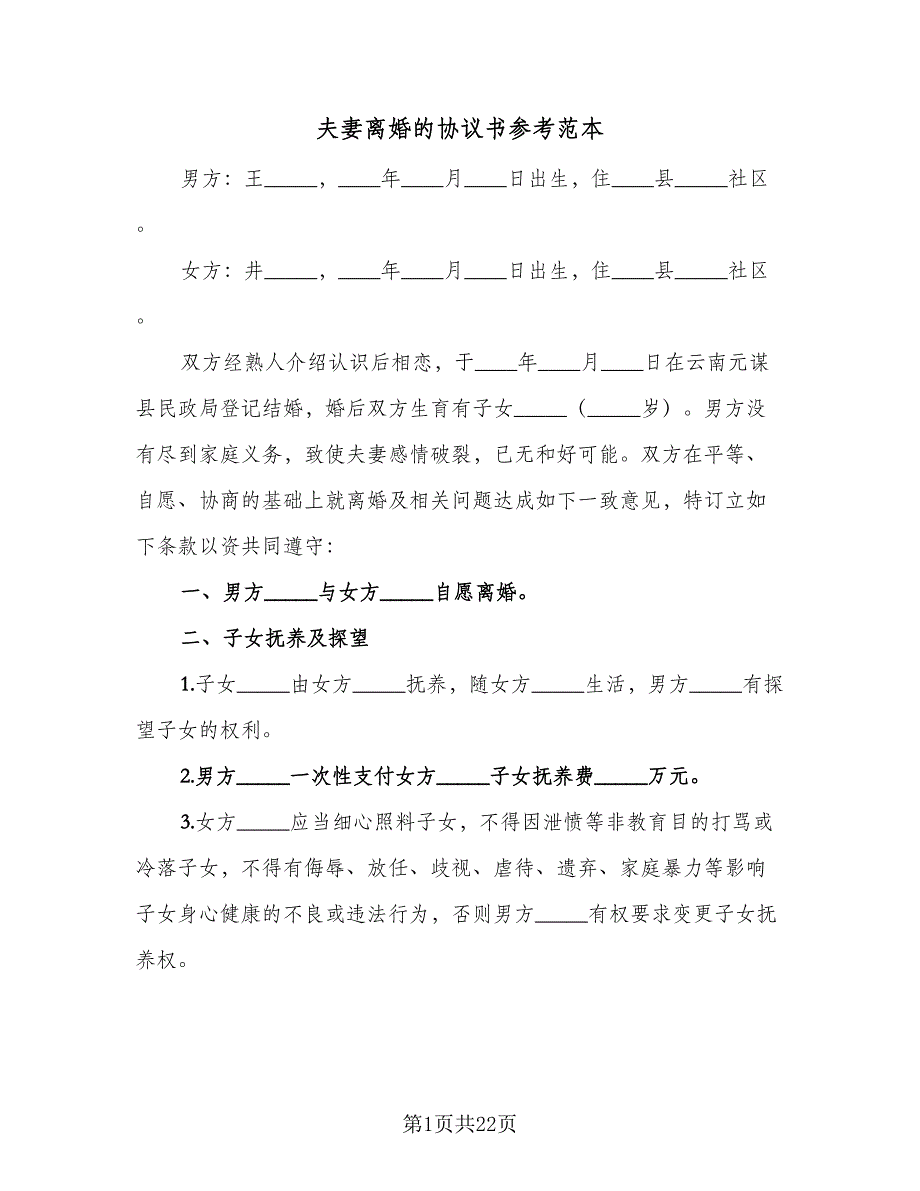 夫妻离婚的协议书参考范本
男方：王_____，____年____月____日出生，住____县_____社区
。
女方：井_____，____年____月____日出生，住____县_____社区
。
双方经熟人介绍认识后相恋，于____年____月____日在云南元谋
县民政局登记结婚，婚后双方生育有子女_____（_____岁）。男方没
有尽到家庭义务，致使夫妻感情破裂，已无和好可能。双方在平等、
自愿、协商的基础上就离婚及相关问题达成如下一致意见，特订立如
下条款以资共同遵守：
一、男方_____与女方_____自愿离婚。
二、子女抚养及探望
1.子女_____由女方_____抚养，随女方_____生活，男方_____有探
望子女的权利。
2.男方_____一次性支付女方_____子女抚养费_____万元。
3.女方_____应当细心照料子女，不得因泄愤等非教育目的打骂或
冷落子女，不得有侮辱、放任、歧视、虐待、遗弃、家庭暴力等影响
子女身心健康的不良或违法行为，否则男方_____有权要求变更子女抚
养权。
第1页共22页